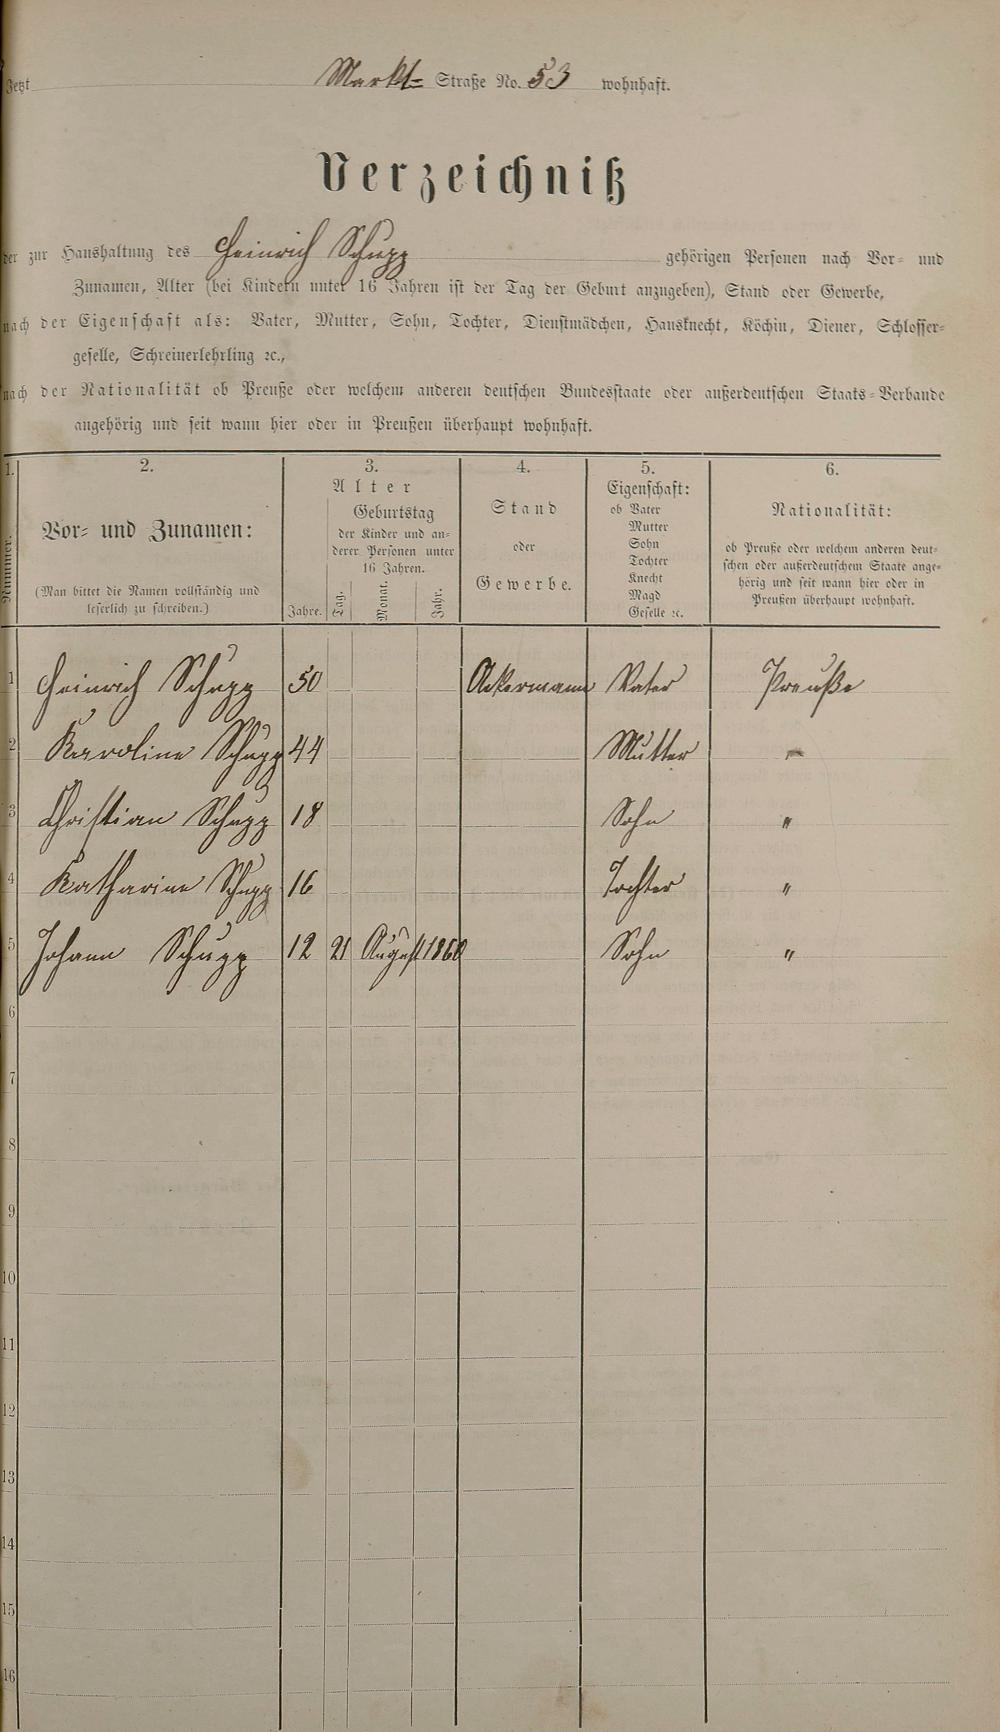 Jetzt Markt= Straße No. 53 wohnhaft.
Verzeichniß
der zur Haushaltung des Heinrich Schupp gehörigen Personen nach Vor- und
Zunamen, Alter (bei Kindern unter 16 Jahren ist der Tag der Geburt anzugeben), Stand oder Gewerbe,
nach der Eigenschaft als: Vater, Mutter, Sohn, Tochter, Dienstmädchen, Hausknecht, Köchin, Diener, Schlosser-
geselle, Schreinerlehrling ꝛc.,
nach der Nationalität ob Preuße oder welchem anderen deutschen Bundesstaate oder außerdeutschen Staats-Verbande
angehörig und seit wann hier oder in Preußen überhaupt wohnhaft.
1. 2. 3. 4. 5. 6.
Nummer.
Vor- und Zunamen:
(Man bittet die Namen vollständig und
leserlich zu schreiben.)
Alter
Jahre.
Geburtstag
der Kinder und an-
derer Personen unter
16 Jahren.
Tag. Monat. Jahr.
Stand
oder
Gewerbe.
Eigenschaft:
ob Vater
Mutter
Sohn
Tochter
Knecht
Magd
Geselle ꝛc.
Nationalität:
ob Preuße oder welchem anderen deut-
schen oder außerdeutschem Staate ange-
hörig und seit wann hier oder in
Preußen überhaupt wohnhaft.
1 Heinrich Schupp 50 Ackermann Vater Preuße
2 Karoline Schupp 44 Mutter "
3 Christian Schupp 18 Sohn "
4 Katharine Schupp 16 Tochter "
5 Johann Schupp 12 21 August 1860 Sohn "
6
7
8
9
10
11
12
13
14
15
16